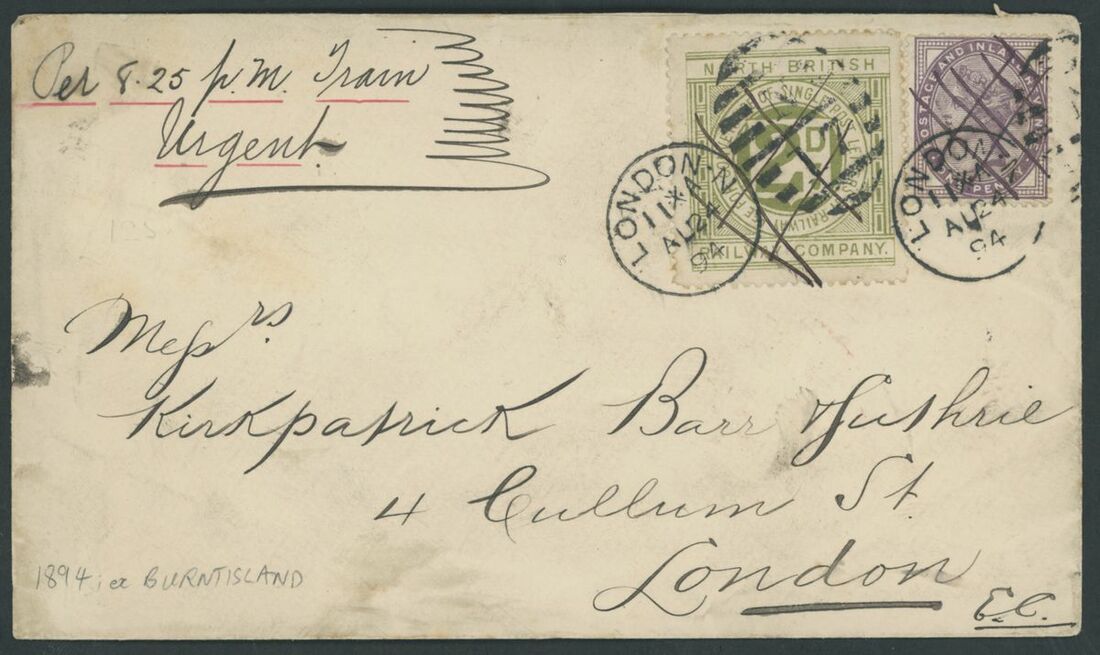 Per 8.25 p.m. Train
Urgent
NORTH BRITISH
OF SINGLE POST LETTER
2D
RAILWAY
RAILWAY COMPANY.
POSTAGE AND INLAND
PENNY
LONDON·N
11 X A
AU 24
94
LONDON
11 X A
AU 24
94
Messrs
Kirkpatrick Barr & Guthrie
4 Cullum St.
London
E.C.
1894; ex BURNTISLAND